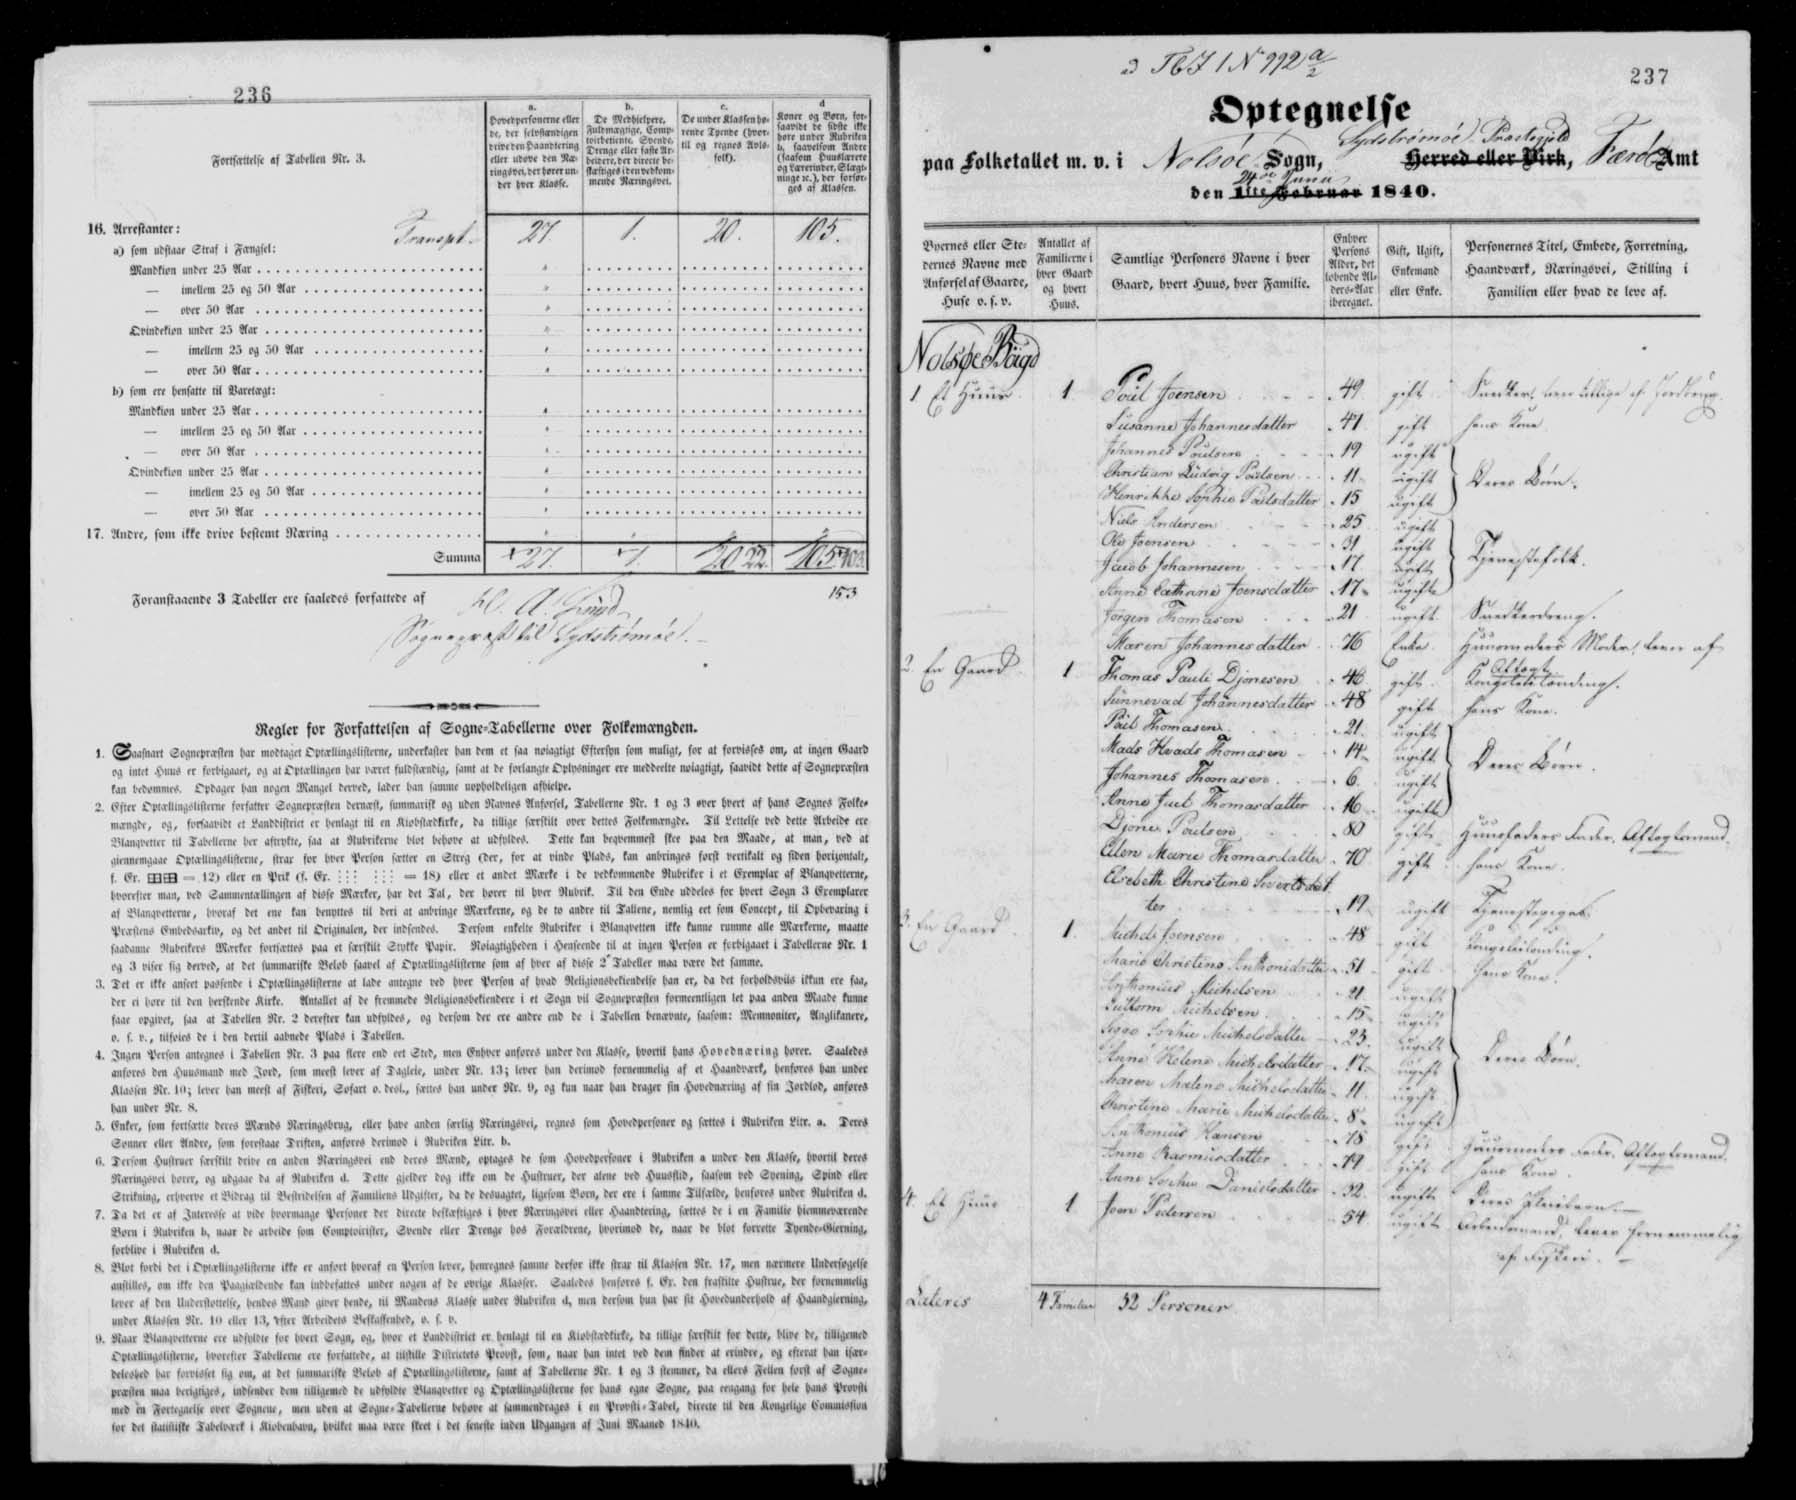 236
Fortsættelse af Tabellen Nr. 3.
a.
Hovedpersonerne eller
de, der selvstændigen
drive den Haandtering
eller udøve den Næ-
ringsvei, der hører un-
der hver Klasse.
b.
De Medhjelpere,
Fuldmægtige, Comp-
toirbetiente, Svende,
Drenge eller faste Ar-
beidere, der directe be-
skæftiges i den vedkom-
mende Næringsvei.
c.
De under Klassen hø-
rende Tyende (hvor-
til og regnes Avls-
folk).
d
Koner og Børn, for-
saavidt de sidste ikke
høre under Rubriken
b, saavelsom Andre
(saasom Huuslærere
og Lærerinder, Slægt-
ninge ꝛc.), der forsør-
ges af Klassen.
16. Arrestanter: Transpt. 27. 1. 20. 105.
a) som udstaae Straf i Fængsel:
Mandkiøn under 25 Aar
— imellem 25 og 50 Aar
— over 50 Aar
Qvindekiøn under 25 Aar
— imellem 25 og 50 Aar
— over 50 Aar
b) som ere hensatte til Varetægt:
Mandkiøn under 25 Aar
— imellem 25 og 50 Aar
— over 50 Aar
Qvindekiøn under 25 Aar
— imellem 25 og 50 Aar
— over 50 Aar
17. Andre, som ikke drive bestemt Næring
Summa 27. 1. 20 22. 105 103.
Foranstaaende 3 Tabeller ere saaledes forfattede af 153
Sognepræst til Sydstrømøe.
Regler for Forfattelsen af Sogne-Tabellerne over Folkemængden.
1. Saasnart Sognepræsten har modtaget Optællingslisterne, underkaster han dem et saa nøiagtigt Eftersyn som muligt, for at forvisses om, at ingen Gaard
og intet Huus er forbigaaet, og at Optællingen har været fuldstændig, samt at de forlangte Oplysninger ere meddeelte nøiagtigt, saavidt dette af Sognepræsten
kan bedømmes. Opdager han nogen Mangel derved, lader han samme uopholdeligen afhielpe.
2. Efter Optællingslisterne forfatter Sognepræsten dernæst, summarisk og uden Navnes Anførsel, Tabellerne Nr. 1 og 3 over hvert af hans Sognes Folke-
mængde, og, forsaavidt et Landdistrict er henlagt til en Kiøbstædkirke, da tillige særskilt over dettes Folkemængde. Til Lettelse ved dette Arbeide ere
Blanqvetter til Tabellerne her aftrykte, saa at Rubrikerne blot behøve at udfyldes. Dette kan beqvemmest skee paa den Maade, at man, ved at
giennemgaae Optællingslisterne, strax for hver Person sætter en Streg (der, for at vinde Plads, kan anbringes først vertikalt og siden horizontalt,
f. Ex. = 12) eller en Prik (f. Ex. ⋮⋮⋮ ⋮⋮⋮ = 18) eller et andet Mærke i de vedkommende Rubriker i et Exemplar af Blanqvetterne,
hvorefter man, ved Sammentællingen af disse Mærker, har det Tal, der hører til hver Rubrik. Til den Ende uddeles for hvert Sogn 3 Exemplarer
af Blanqvetterne, hvoraf det ene kan benyttes til deri at anbringe Mærkerne, og de to andre til Tallene, nemlig eet som Concept, til Opbevaring i
Præstens Embedsarkiv, og det andet til Originalen, der indsendes. Dersom enkelte Rubriker i Blanqvetten ikke kunne rumme alle Mærkerne, maatte
saadanne Rubrikers Mærker fortsættes paa et særskilt Stykke Papir. Nøiagtigheden i Henseende til at ingen Person er forbigaaet i Tabellerne Nr. 1
og 3 viser sig derved, at det summariske Beløb saavel af Optællingslisterne som af hver af disse 2 Tabeller maa være det samme.
3. Det er ikke anseet passende i Optællingslisterne at lade antegne ved hver Person af hvad Religionsbekiendelse han er, da det forholdsviis ikkun ere faa,
der ei høre til den herskende Kirke. Antallet af de fremmede Religionsbekiendere i et Sogn vil Sognepræsten formeentligen let paa anden Maade kunne
faae opgivet, saa at Tabellen Nr. 2 derefter kan udfyldes, og dersom der ere andre end de i Tabellen benævnte, saasom: Memnoniter, Anglikanere,
o. s. v., tilføies de i den dertil aabnede Plads i Tabellen.
4. Ingen Person antegnes i Tabellen Nr. 3 paa flere end eet Sted, men Enhver anføres under den Klasse, hvortil hans Hovednæring hører. Saaledes
anføres den Huusmand med Jord, som meest lever af Dagleie, under Nr. 13; lever han derimod fornemmelig af et Haandværk, henføres han under
Klassen Nr. 10; lever han meest af Fiskeri, Søfart o. desl., sættes han under Nr. 9, og kun naar han drager sin Hovednæring af sin Jordlod, anføres
han under Nr. 8.
5. Enker, som fortsætte deres Mænds Næringsbrug, eller have anden særlig Næringsvei, regnes som Hovedpersoner og sættes i Rubriken Litr. a. Deres
Sønner eller Andre, som forestaae Driften, anføres derimod i Rubriken Litr. b.
6. Dersom Hustruer særskilt drive en anden Næringsvei end deres Mænd, optages de som Hovedpersoner i Rubriken a under den Klasse, hvortil deres
Næringsvei hører, og udgaae da af Rubriken d. Dette gjelder dog ikke om de Hustruer, der alene ved Huusflid, saasom ved Syening, Spind eller
Strikning, erhverve et Bidrag til Bestridelsen af Familiens Udgifter, da de desuagtet, ligesom Børn, der ere i samme Tilfælde, henføres under Rubriken d.
7. Da det er af Interesse at vide hvormange Personer der directe beskæftiges i hver Næringsvei eller Haandtering, sættes de i en Familie hiemmeværende
Børn i Rubriken b, naar de arbeide som Comptoirister, Svende eller Drenge hos Forældrene, hvorimod de, naar de blot forrette Tyende-Gierning,
forblive i Rubriken d.
8. Blot fordi det i Optællingslisterne ikke er anført hvoraf en Person lever, henregnes samme derfor ikke strax til Klassen Nr. 17, men nærmere Undersøgelse
anstilles, om ikke den Paagjældende kan indbefattes under nogen af de øvrige Klasser. Saaledes henføres f. Ex. den fraskilte Hustrue, der fornemmelig
lever af den Understøttelse, hendes Mand giver hende, til Mandens Klasse under Rubriken d, men dersom hun har sit Hovedunderhold af Haandgierning,
under Klassen Nr. 10 eller 13, efter Arbeidets Beskaffenhed, o. s. v.
9. Naar Blanqvetterne ere udfyldte for hvert Sogn, og, hvor et Landdistrict er henlagt til en Kiøbstædkirke, da tillige særskilt for dette, blive de, tilligemed
Optællingslisterne, hvorefter Tabellerne ere forfattede, at tilstille Districtets Provst, som, naar han intet ved dem finder at erindre, og efterat han især-
deleshed har forvisset sig om, at det summariske Beløb af Optællingslisterne, samt af Tabellerne Nr. 1 og 3 stemmer, da ellers Feilen først af Sogne-
præsten maa berigtiges, indsender dem tilligemed de udfyldte Blanqvetter og Optællingslisterne for hans egne Sogne, paa eengang for hele hans Provsti
med en Fortegnelse over Sognene, men uden at Sogne-Tabellerne behøve at sammendrages i en Provsti-Tabel, directe til den Kongelige Commission
for det statistiske Tabelværk i Kiøbenhavn, hvilket maa være skeet i det seneste inden Udgangen af Juni Maaned 1840.
237
Optegnelse
Sydstrømøe Præstegjeld
paa Folketallet m. v. i Nolsøe Sogn, Herred eller Birk, Færøe Amt
24de Junii
den 1ste Februar 1840.
Byernes eller Ste-
dernes Navne med
Anførsel af Gaarde,
Huse o. s. v.
Antallet af
Familierne i
hver Gaard
og hvert
Huus.
Samtlige Personers Navne i hver
Gaard, hvert Huus, hver Familie.
Enhver
Persons
Alder, det
løbende Al-
ders-Aar
iberegnet.
Gift, Ugift,
Enkemand
eller Enke.
Personernes Titel, Embede, Forretning,
Haandværk, Næringsvei, Stilling i
Familien eller hvad de leve af.
Nolsøe Bÿigd
1 Et Huus 1 Poül Joensen 49 gift Snedker, lever tillige af Jordbrug.
Susanne Johannesdatter 47 gift hans Kone
Johannes Poulsen 19 ugift
Christian Ludvig Poulsen 11 ugift Deres Børn.
Henrikke Sophie Poulsdatter 15 ugift
Niels Andersen 25 ugift
Ole Joensen 31 ugift
Jacob Johannesen 17 ugift Tjenestefolk.
Anne Cathrine Joensdatter 17 ugift
Jørgen Thomasen 21 ugift Snedkerdreng.
Maren Johannesdatter 76 Enke Huusmoders Moder, lever af
Aftægt
2. En Gaard 1 Thomas Pauli Djonesen 48 gift Kongsleilænding.
Sunnevad Johannesdatter 48 gift hans Kone.
Poul Thomasen 21 ugift
Mads Hvads Thomasen 14 ugift
Johannes Thomasen 6 ugift Deres Børn.
Anne Juet Thomasdatter 16 ugift
Djone Poulsen 80 gift Huusfaders Fader, Aftægtsmand.
Elen Marie Thomasdatter 70 gift hans Kone.
Elsebeth Christine Sivertsdat
ter 19 ugift Tjenestepige.
3. En Gaard 1. Michel Joensen 48 gift Kongsleilænding.
Marie Christine Anthonidatter 51 gift hans Kone.
Anthonius Michelsen 21 ugift
Guttorm Michelsen 15 ugift
Sigga Sophie Michelsdatter 23 ugift
Anne Helene Michelsdatter 17 ugift Deres Børn.
Maren Malene Michelsdatter 11 ugift
Christine Marie Michelsdatter 8 ugift
Anthonius Hansen 78 gift Huusmoders Fader, Aftægtsmand.
Anne Rasmusdatter 79 gift hans Kone
Anne Sophie Danielsdatter 32 ugift Deres Pleiebarn.
4. Et Huus 1 Joen Pedersen 54 ugift Arbeidsmand, lever fornemmelig
af Fiskeri.
Lateris 4 Familier 32 Personer